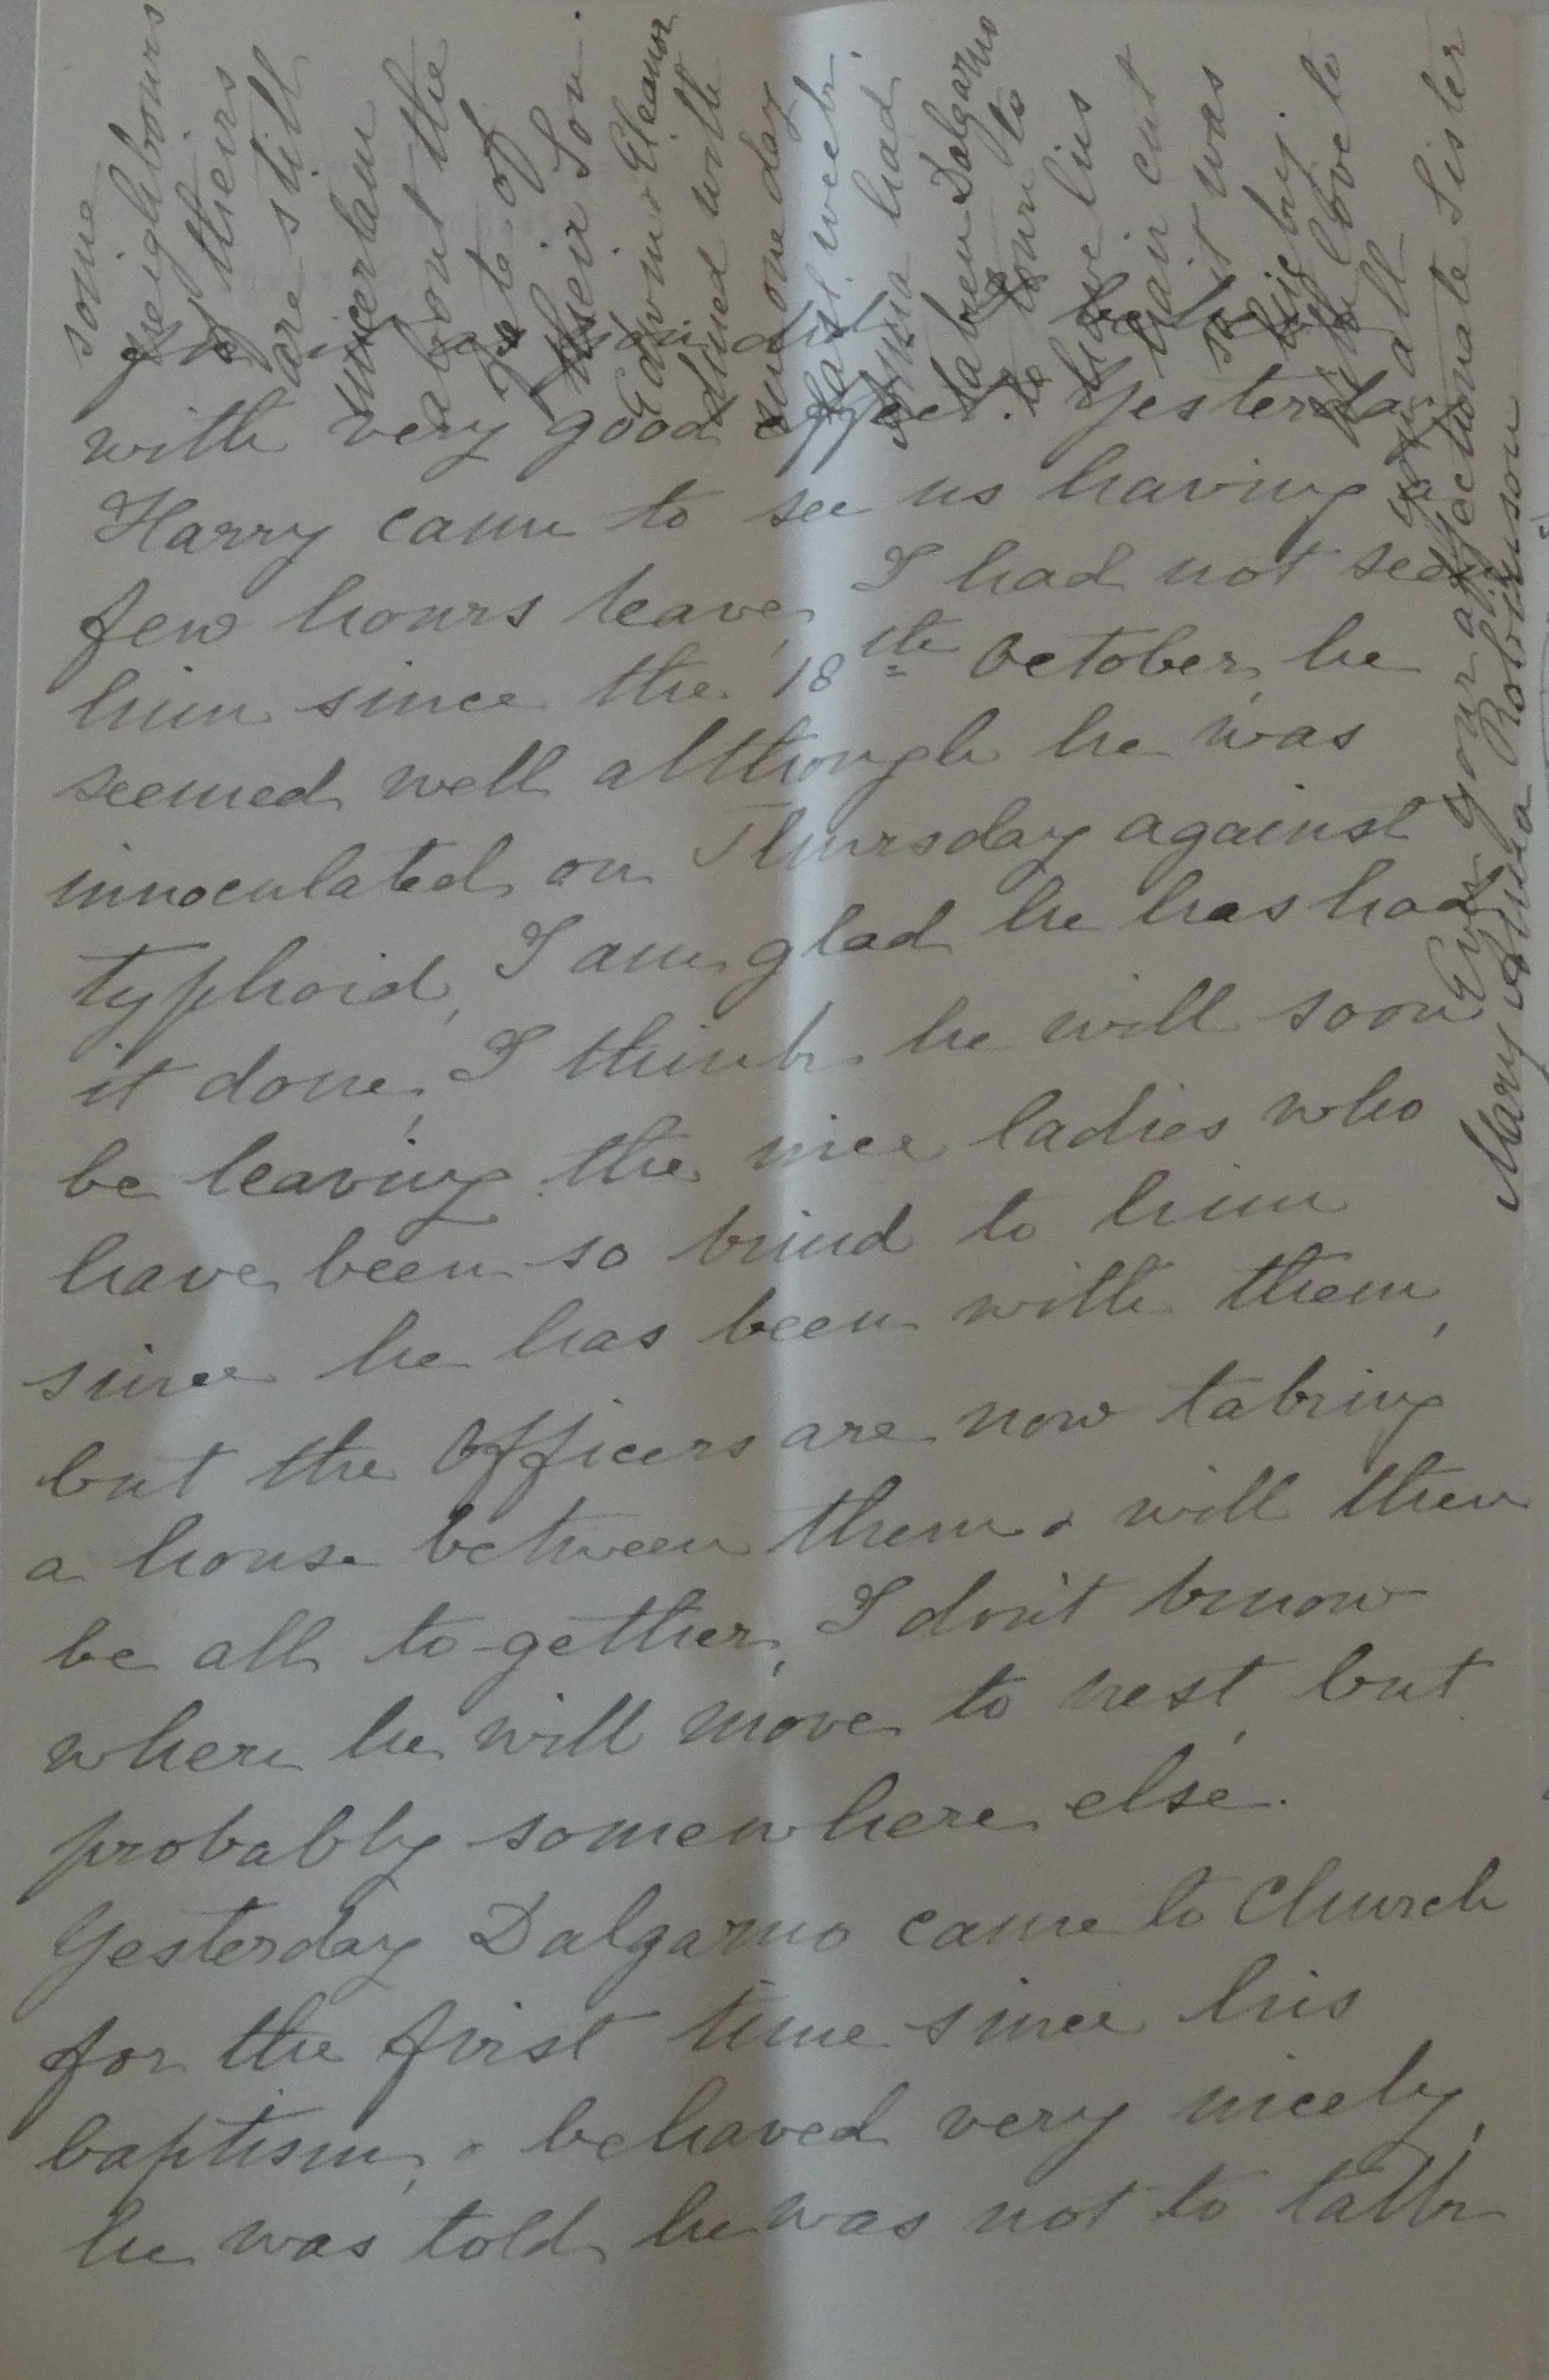 for it as you did
with very good effect. Yesterday
Harry came to see us having a
few hours leave, I had not seen
him since the 18th October, he
seemed well although he was
innoculated on Thursday against
typhoid, I am glad he has had
it done, I think he will soon
be leaving the nice ladies who
have been so kind to him
since he has been with them,
but the Officers are now taking
a house between them & will then
be all to-gether, I don't know
where he will move to next, but
probably somewhere else.
Yesterday Dalgarno came to Church
for the first time since his
baptism, & behaved very nicely,
he was told he was not to talk
some
neighbours
of theirs
are still
uncertain
about the
fate of
their Son.
Edwin & Eleanor
dined with
us one day
last week.
Anna had
taken Dalgarno
to town to
have his
hair cut
it was
so big
With love to
you all
Ever your affectionate Sister
Mary Anna Robinson